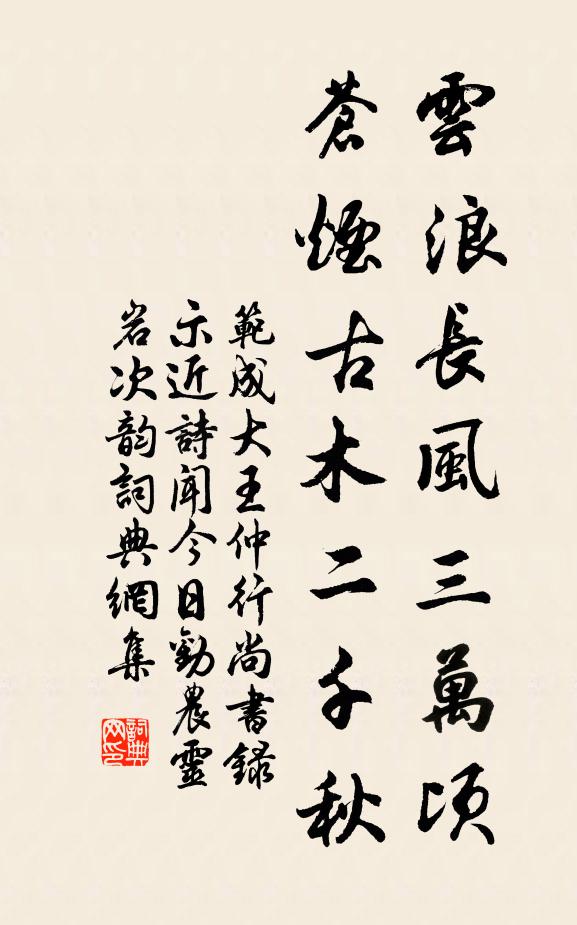 雲浪長風三萬頃
蒼煙古木二千秋
範成大王仲行尚書録
示近詩闻今日勸農靈
岩次韵詞典網集
詞典网印